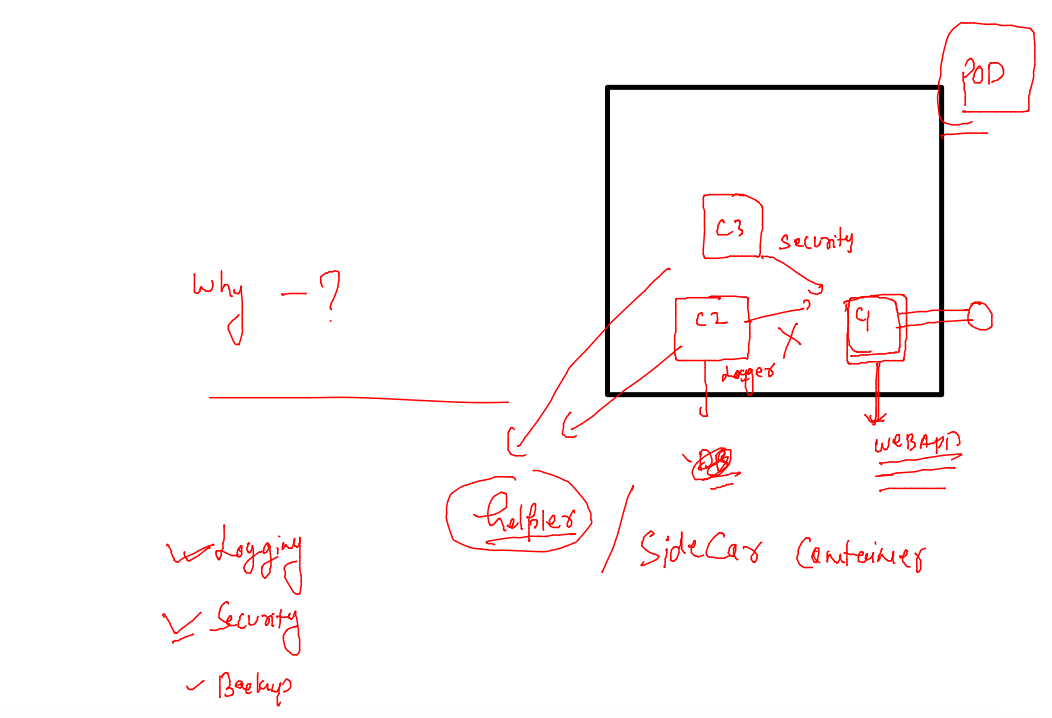 POD
C3
Security
Why - ?
C2
C1
Logger
WEBAPP
helpler / SideCar Container
Logging
Security
Backup